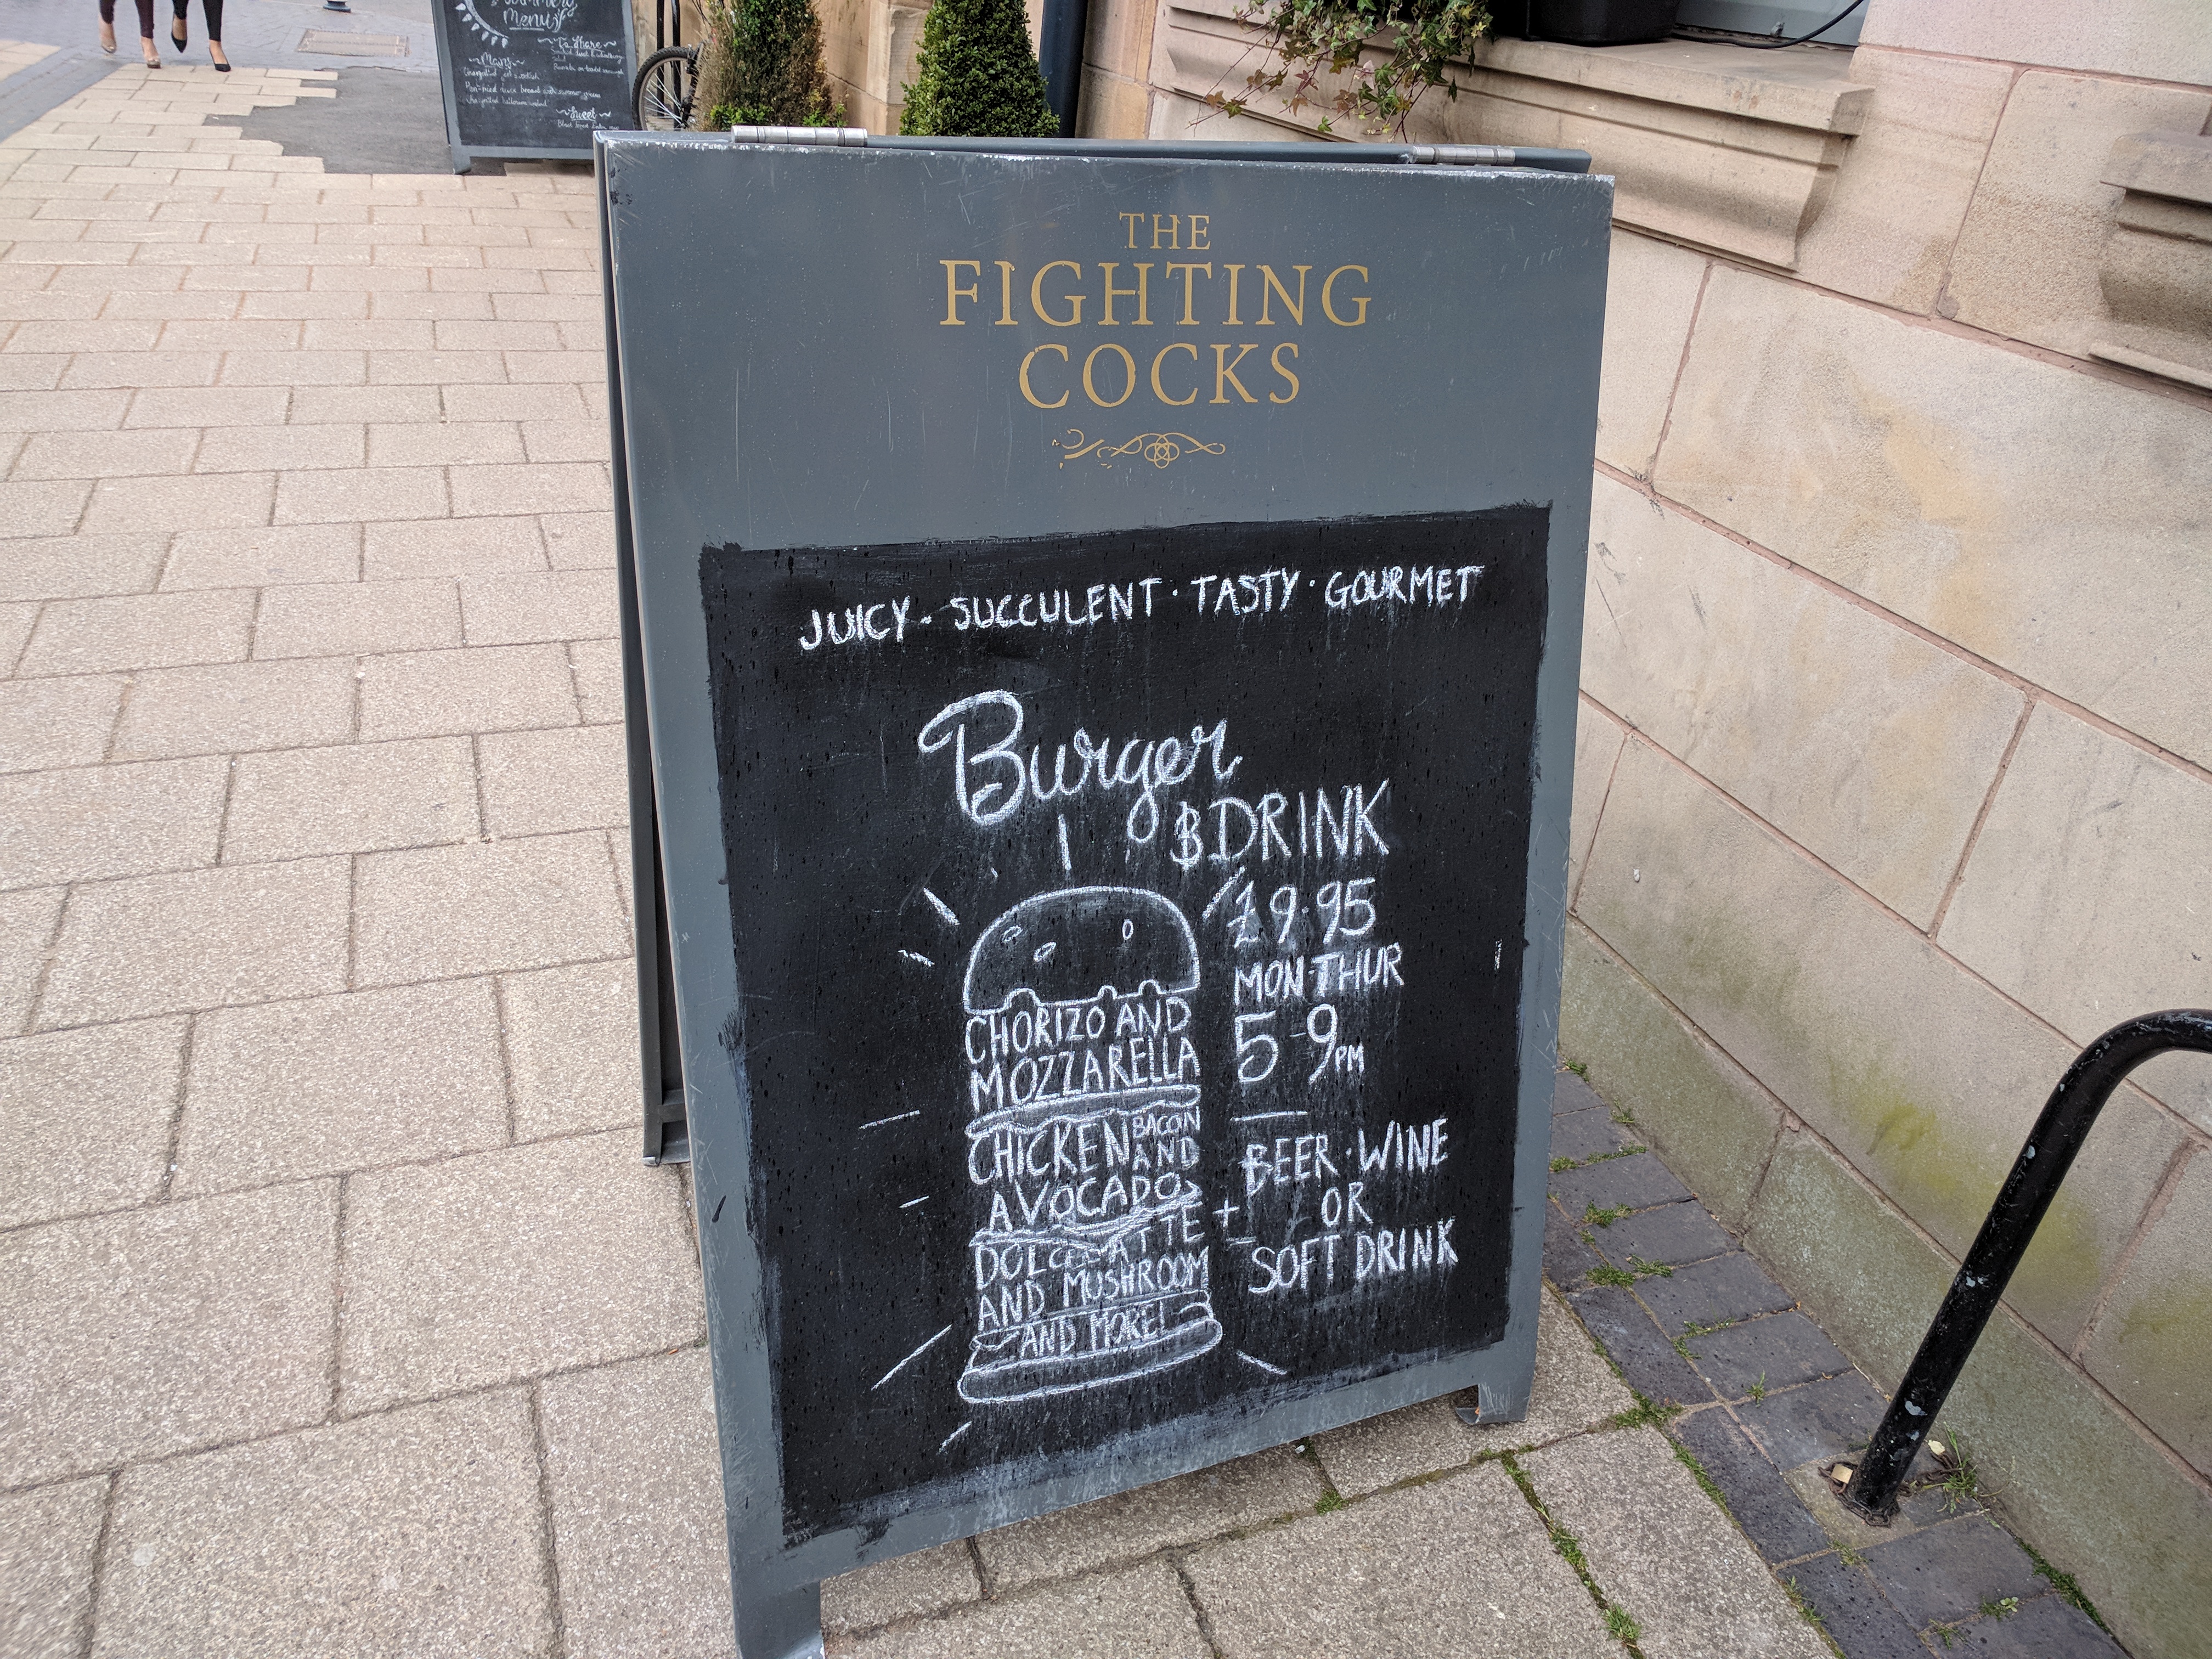 THE
FIGHTING
COCKS
JUICY · SUCCULENT · TASTY · GOURMET
Burger
& DRINK
£9.95
MON-THUR
5-9PM
CHORIZO AND
MOZZARELLA
CHICKEN BACON
AND
AVOCADO
DOLCELATTE
AND MUSHROOM
AND MORE!
+
BEER · WINE
OR
SOFT DRINK
Summery
Menu
Mains
To Share
Sweet